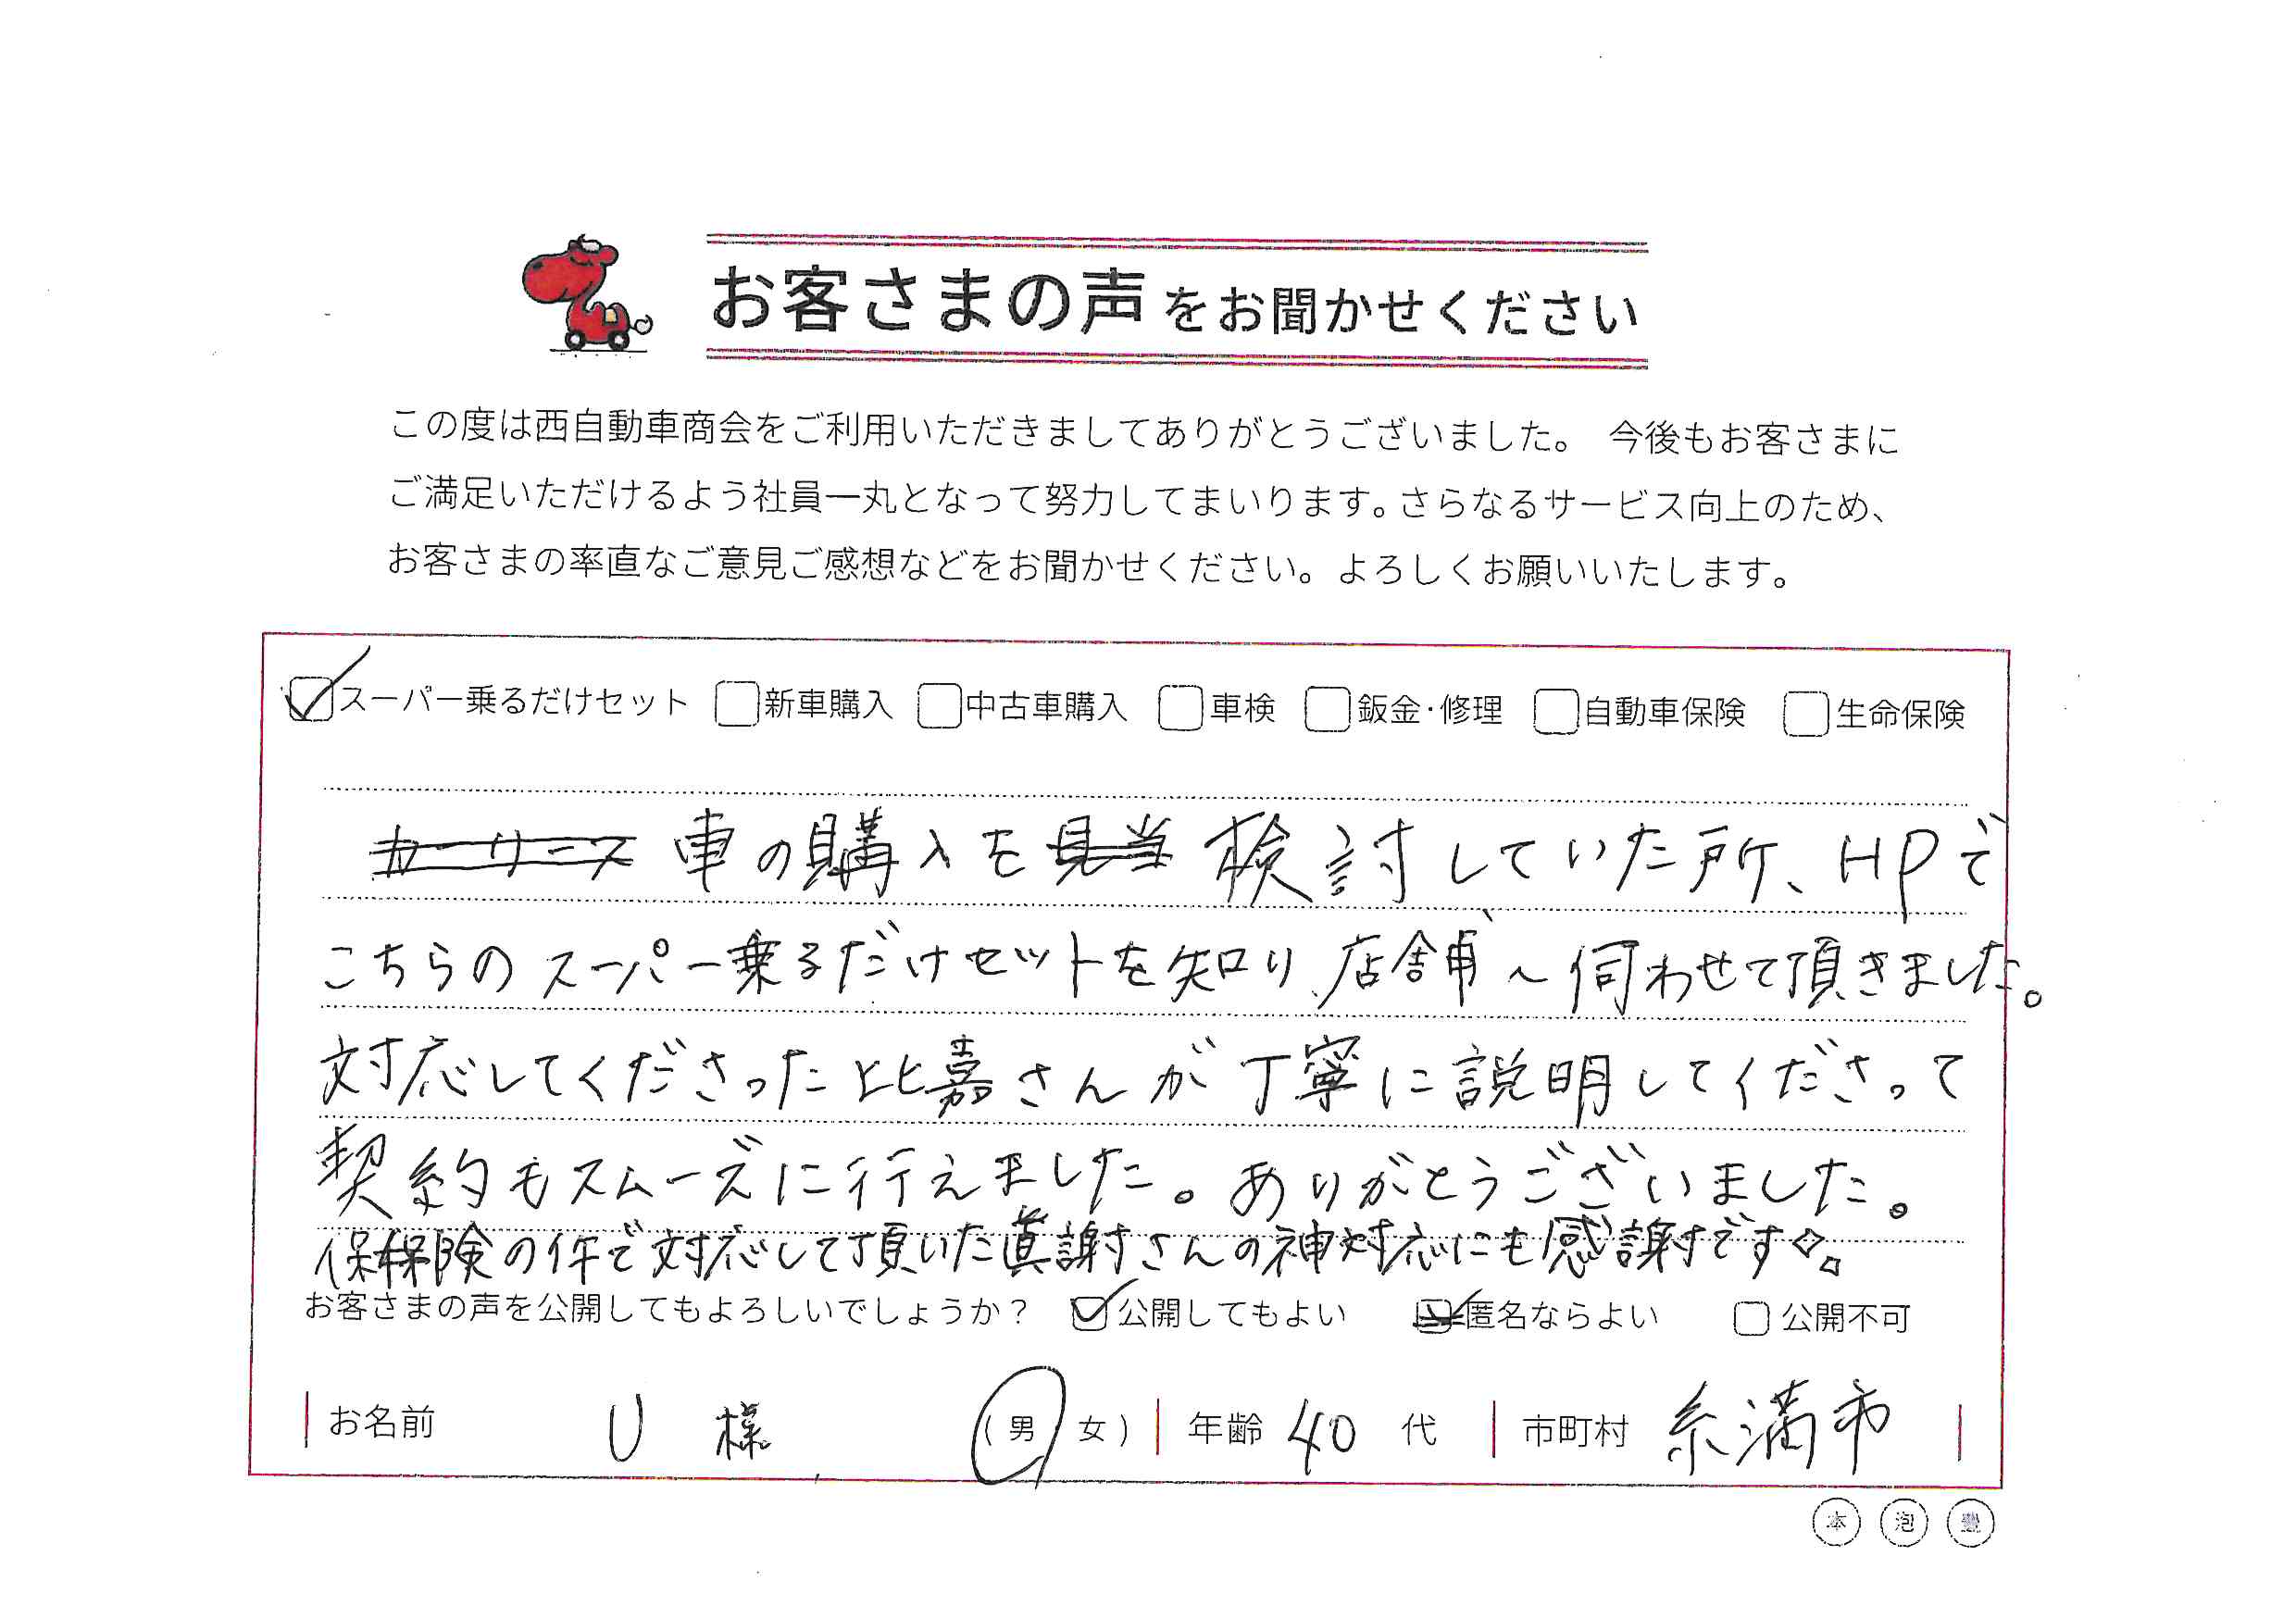 お客さまの声をお聞かせください
この度は西自動車商会をご利用いただきましてありがとうございました。 今後もお客さまに
ご満足いただけるよう社員一丸となって努力してまいります。さらなるサービス向上のため、
お客さまの率直なご意見ご感想などをお聞かせください。よろしくお願いいたします。
スーパー乗るだけセット 新車購入 中古車購入 車検 鈑金・修理 自動車保険 生命保険
カーリース 車の購入を見当 検討していた所、HPで
こちらのスーパー乗るだけセットを知り、店舗へ伺わせて頂きました。
対応してくださった比嘉さんが丁寧に説明してくださって
契約もスムーズに行えました。ありがとうございました。
保険の件で対応して頂いた真謝さんの神対応にも感謝です
お客さまの声を公開してもよろしいでしょうか? 公開してもよい 匿名ならよい 公開不可
お名前 U 様 (男 女) 年齢 40 代 市町村 糸満市
本 泡 豊